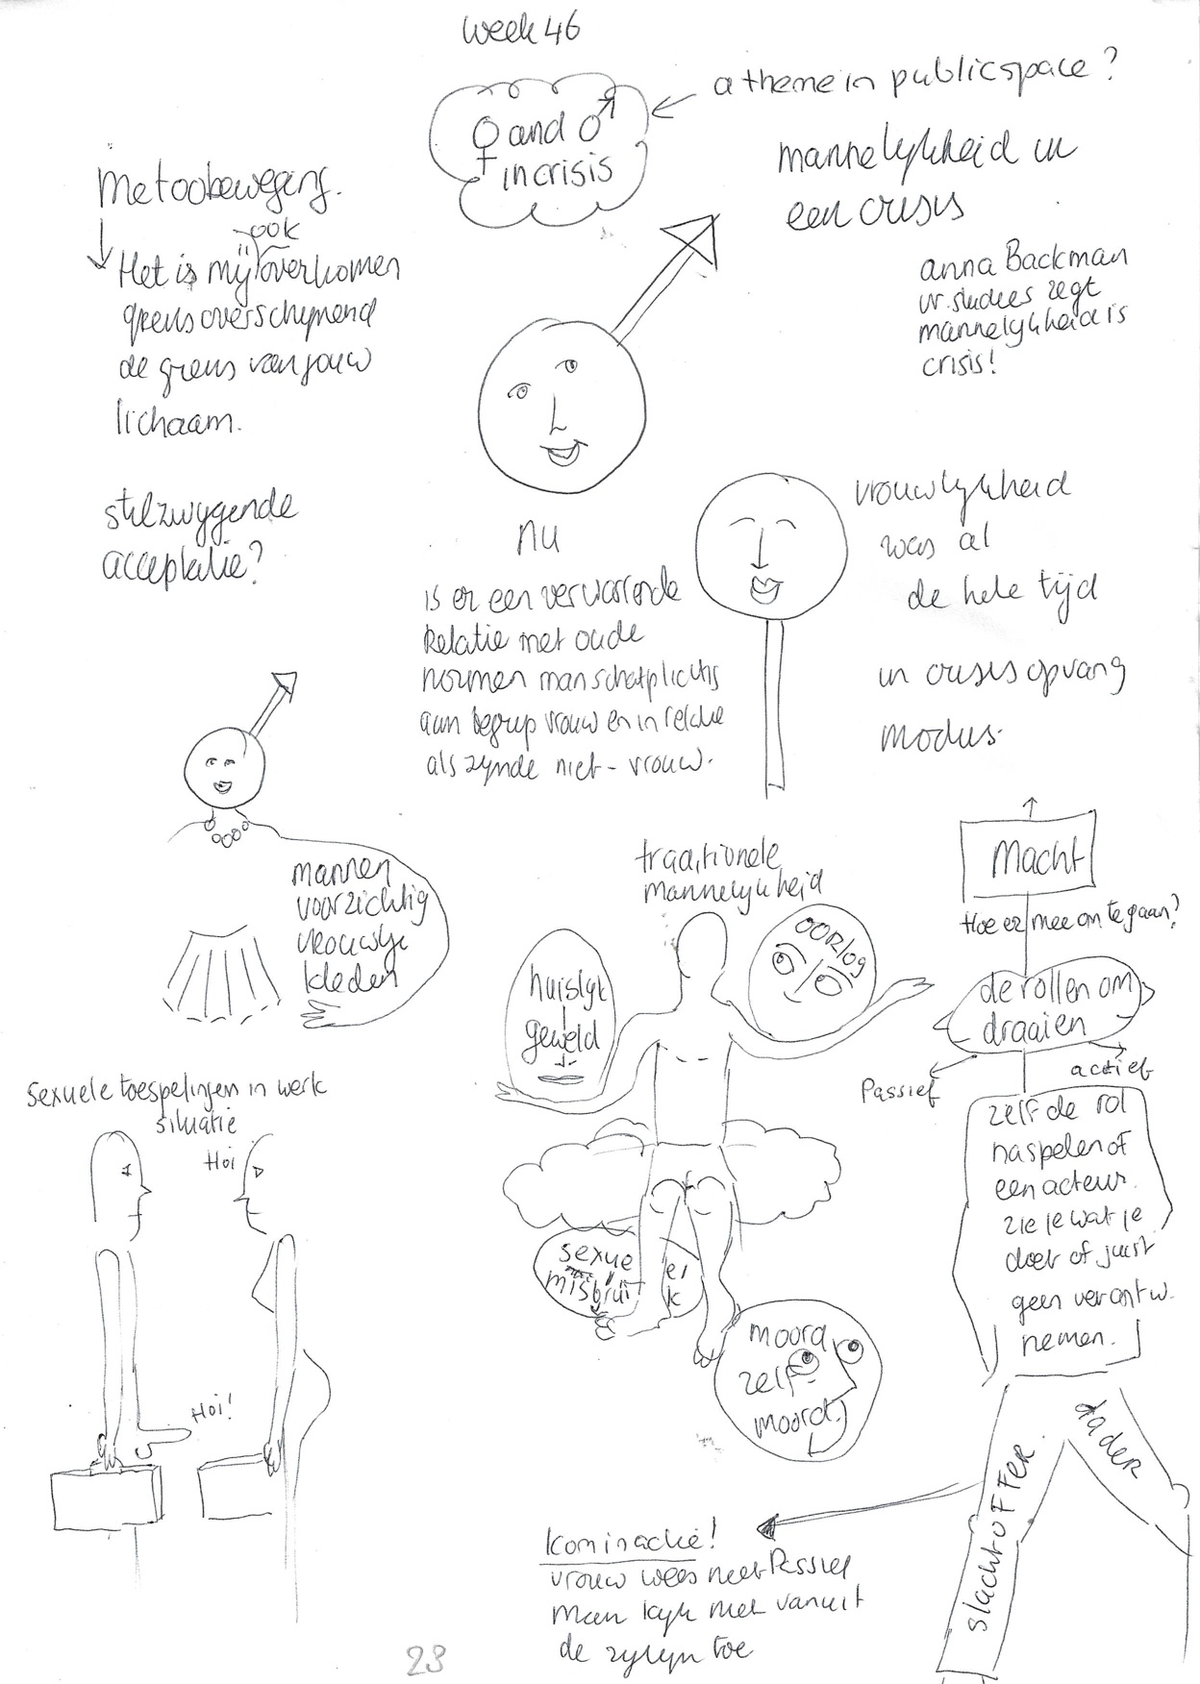 week 46
a theme in public space?
♀ and ♂
in crisis
mannelijkheid in
een crisis
metoobeweging.
ook
Het is mij overkomen
grensoverschrijnend
de grens van jouw
lichaam.
anna Backman
vr. studies zegt
mannelijkheid is
crisis!
stilzwijgende
acceptatie?
vrouwlijkheid
was al
de hele tijd
in crisisopvang
modus.
nu
is er een verwarrende
relatie met oude
normen man schatplichtig
aan begrip vrouw en in relatie
als zijnde niet-vrouw.
mannen
voorzichtig
vrouwlijk
kleden
traditionele
mannelijkheid
huislijk
geweld
oorlog
Macht
Hoe er mee om te gaan?
de rollen om
draaien
Passief
actief
zelf de rol
naspelen of
een acteur.
zie je wat je
doet of juist
geen verantw.
nemen.
sexuele toespelingen in werk
situatie
Hoi
Hoi!
sexue
misbrui
el
k
moord
zelf-
moord
dader
slachtoffer
Kom in actie!
vrouw wees niet Passief
Man kijk niet vanuit
de zijlijn toe
23